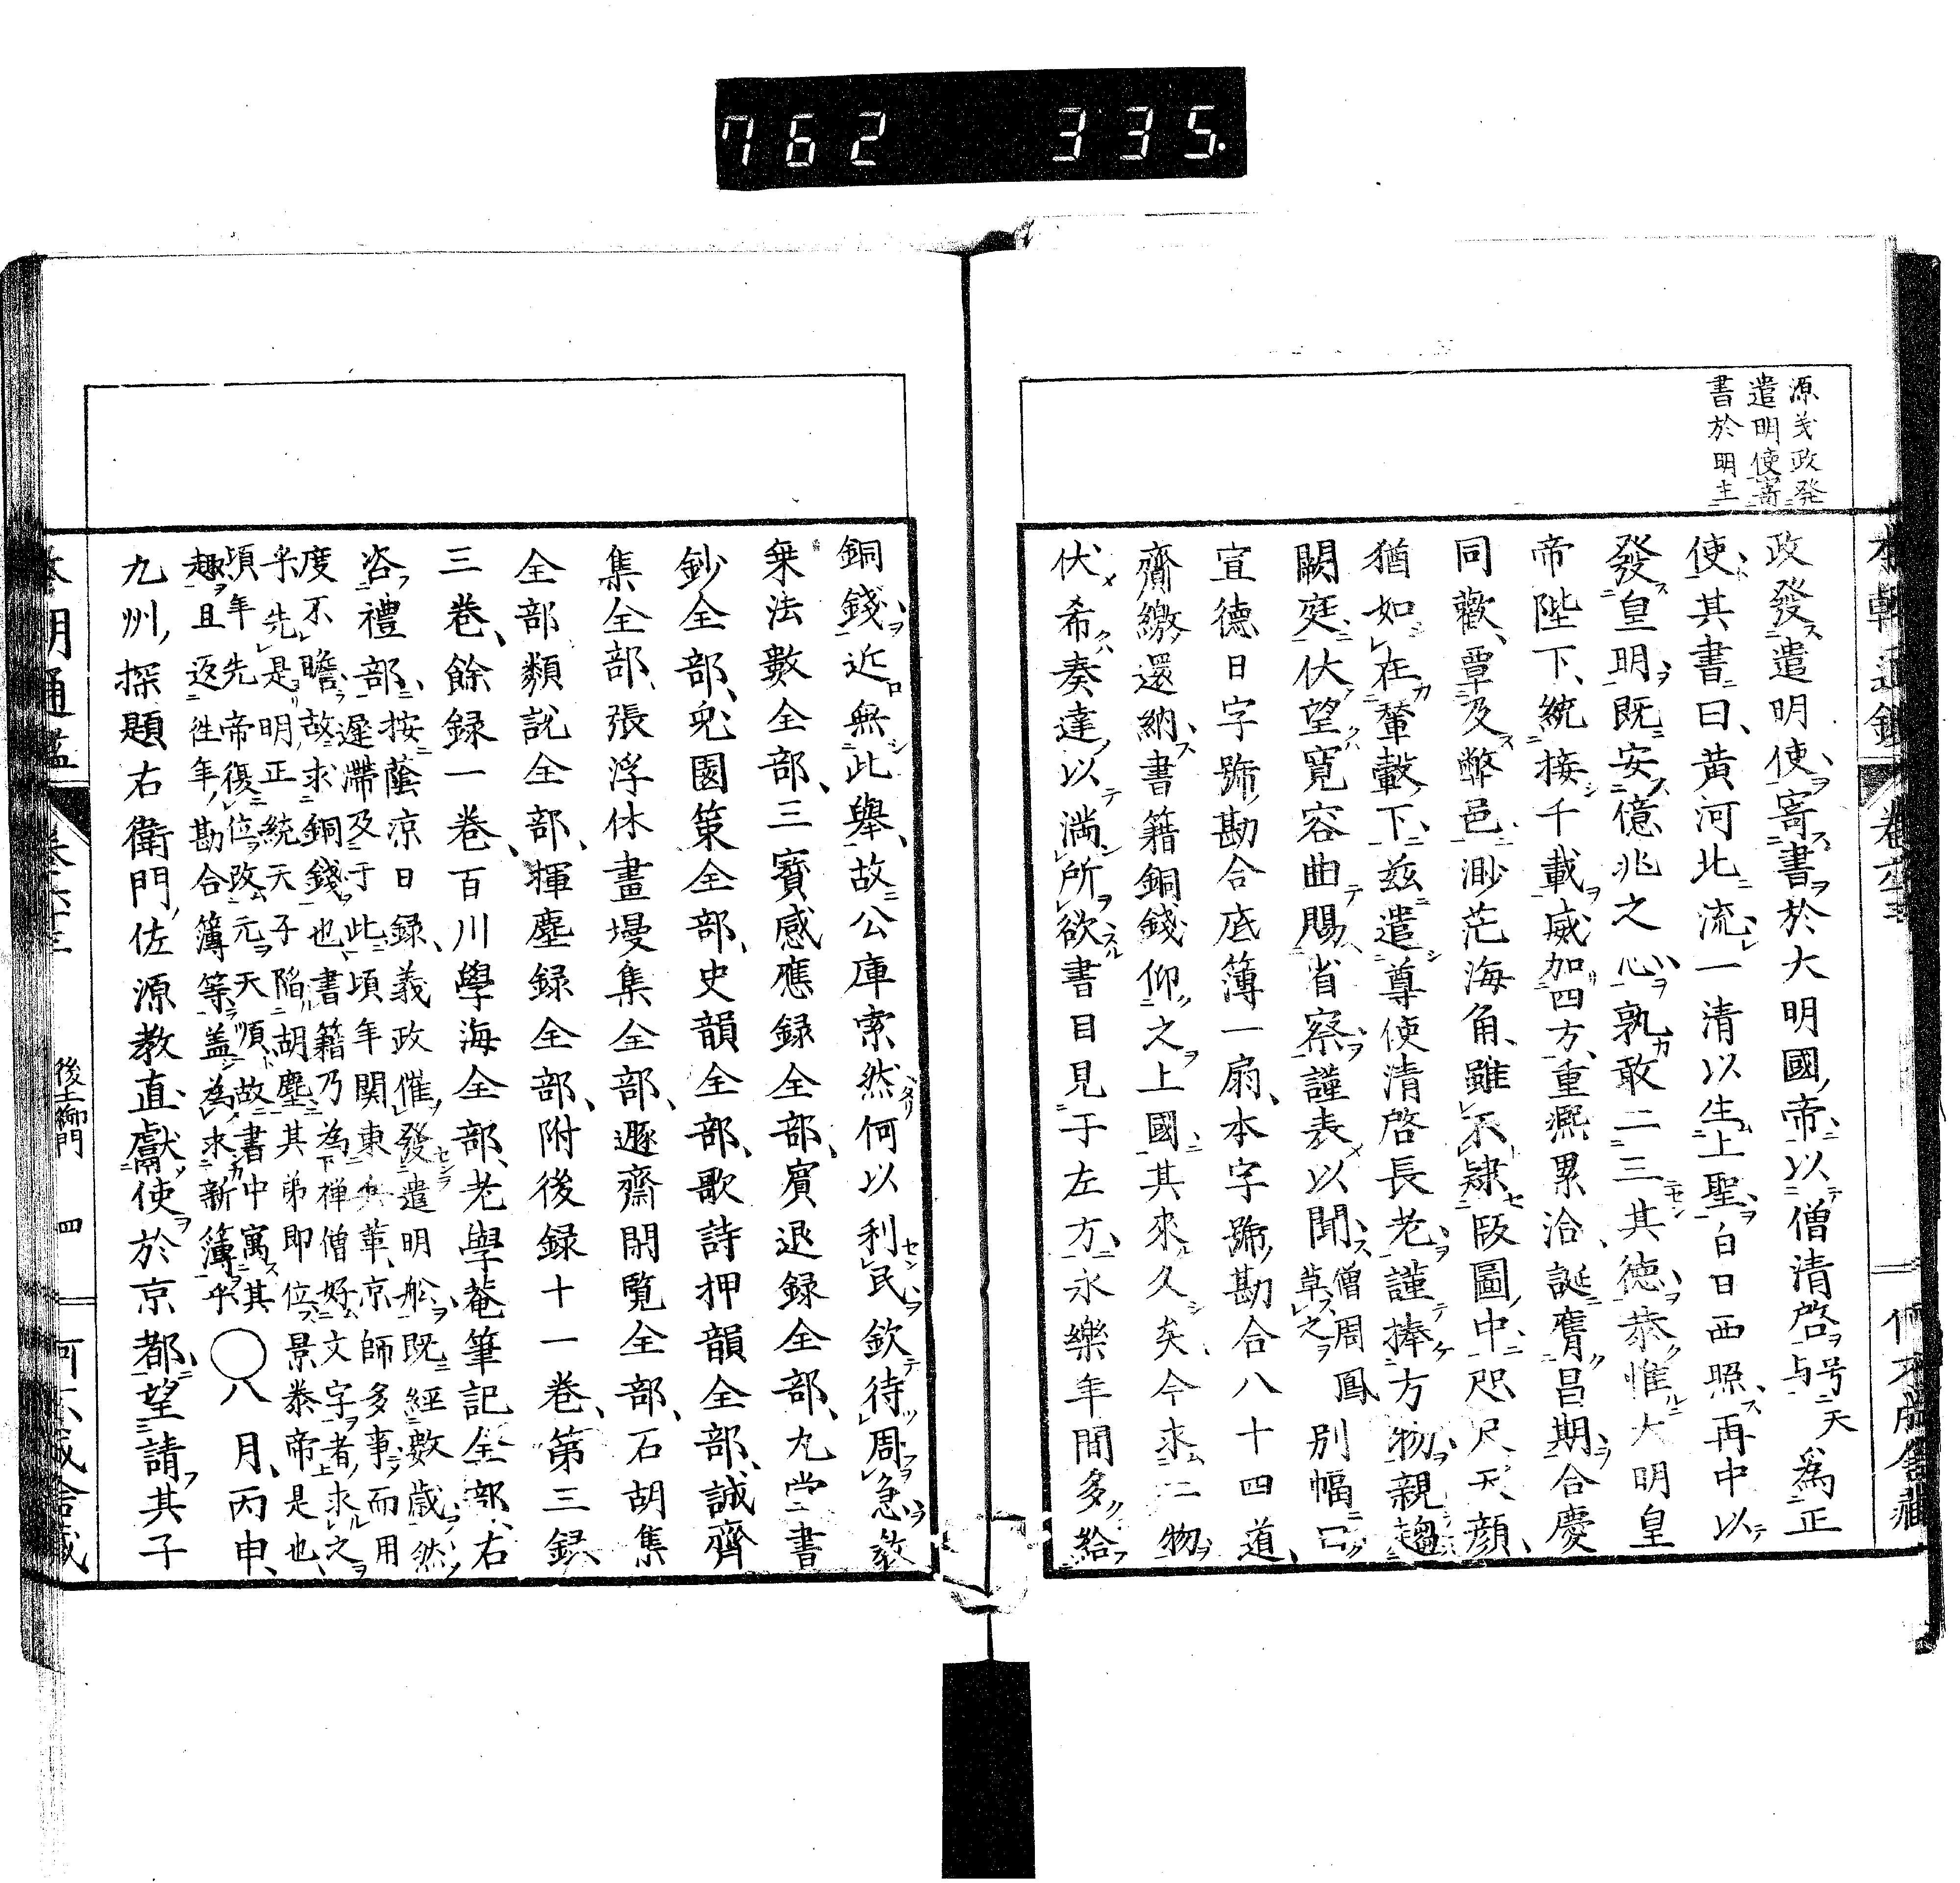 762 335.
源義政発
遣明使寄
書於明主
政發遣明使寄書於大明國帝以僧清啓号天与爲正
使其書曰黄河北流一清以生上聖白日西照再中以
發皇明既安億兆之心孰敢二三其徳恭惟大明皇
帝陛下統接千載威加四方重熙累洽誕膺昌期合慶
同歡覃及弊邑渺茫海角雖不隷版圖中咫尺天顔
猶如在輦轂下茲遣尊使清啓長老謹捧方物親趨
闕庭伏望寛容曲賜省察謹表以聞僧周鳳草之別幅曰
宣德日字號勘合底簿一扇本字號勘合八十四道
齎繳還納書籍銅錢仰之上國其來久矣今求二物
伏希奏達以満所欲書目見于左方永樂年間多給
銅錢近無此舉故公庫索然何以利民欽待周急教
乗法數全部三寶感應録全部賓退録全部九堂書
鈔全部兎園策全部史韻全部歌詩押韻全部誠齊
集全部張浮休畫墁集全部遯齋閑覧全部石胡集
全部類説全部揮塵録全部附後録十一巻第三録
三巻餘録一巻百川學海全部老學菴筆記全部右
咨禮部按蔭凉日録義政催發遣明舩既經數歳然
遲滞及于此頃年関東兵革京師多事而用
度不瞻故求銅錢也書籍乃為禅僧好文字者求之
乎先是明正統天子陥胡塵其弟即位景泰帝是也
頃年先帝復位改元天順故書中寓其
趣且返徃年勘合簿等盖為求新簿乎〇八月丙申
九州探題右衛門佐源教直獻使於京都望請其子
本朝通鑑 卷六十三 後土御門 四